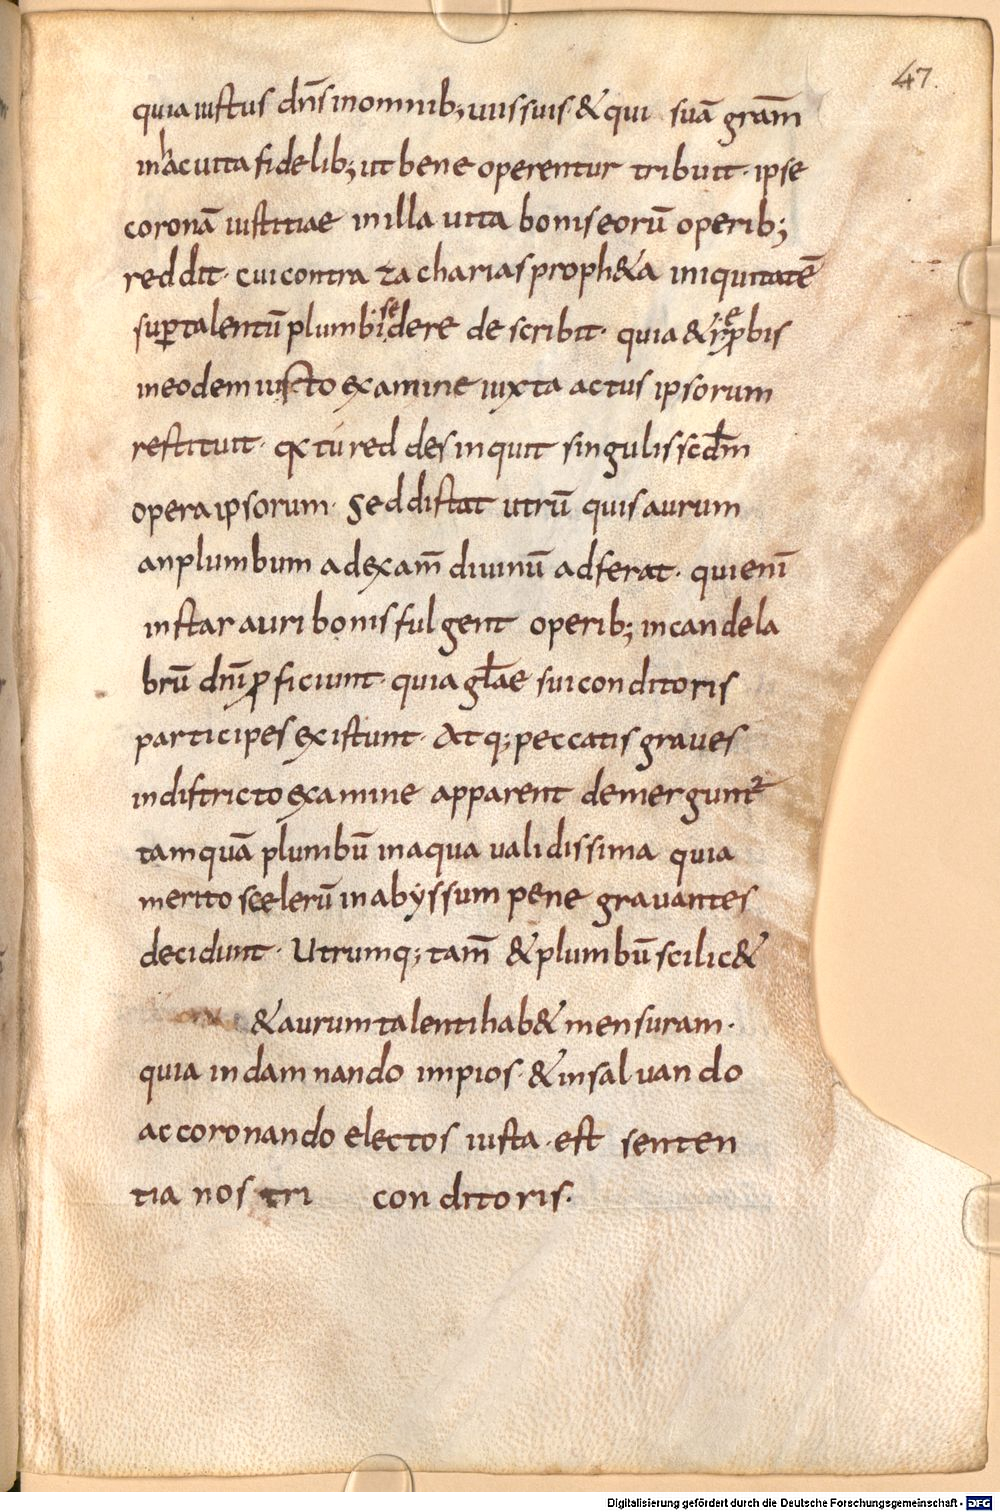 47.
quia iustus dn̄s inomnib; uiis suis & qui suā gram̄
in hac uita fidelib; ut bene operentur tribuit · ipse
coronā iustitiae in illa uita bonis eorū operib;
reddit · cui contra zacharias proph&a iniquitatē
suꝑ talentū plumbi sedere describit · quia & reꝓbis
in eodem iusto examine iuxta actus ipsorum
restituit · qꝛ tu reddes inquit singulis scdm̄
opera ipsorum · Sed distat utrū quis aurum
an plumbum ad exam̄ diuinū adferat · qui enī
instar auri bonis fulgent operib; in candela
brū dnī ꝓficiunt · quia gƚae sui conditoris
participes existunt · Atq; peccatis graues
in districto examine apparent demergunt᷑
tamquā plumbū in aqua ualidissima quia
merito scelerū in abyssum pene grauantes
decidunt · Utrumq; tam̄ & plumbū scilic&
& aurum talenti hab& mensuram ·
quia in damnando impios · & in saluando
ac coronando electos iusta · est senten
tia nostri conditoris ·
Digitalisierung gefördert durch die Deutsche Forschungsgemeinschaft - DFG